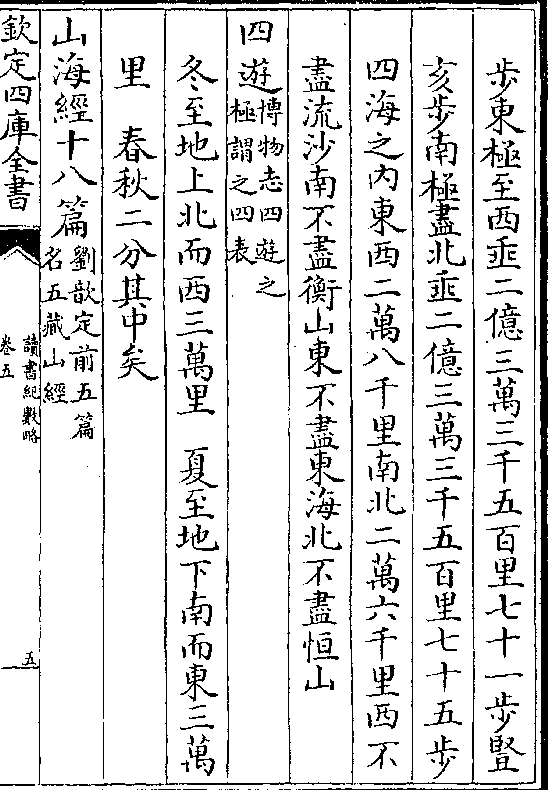 步東極至西垂二億三萬三千五百里七十一步豎
亥步南極盡北垂二億三萬三千五百里七十五步
四海之內東西二萬八千里南北二萬六千里西不
盡流沙南不盡衡山東不盡東海北不盡恒山
四遊博物志四遊之
極謂之四表
冬至地上北而西三萬里　夏至地下南而東三萬
里　春秋二分其中矣
山海經十八篇劉歆定前五篇
名五藏山經
欽定四庫全書
讀書紀數略
卷五
五